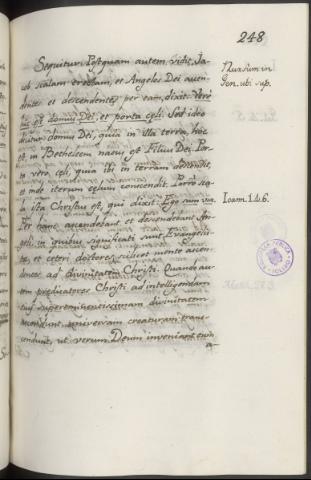 248
Sequitur. Postquam autem vidit Ja-
cob scalam erectam, et Angelos Dei ascen-
dentes et descendentes per eam, dixit: Vere
hic est domus Dei, et porta cęli. Sed ideo
dicitur domus Dei, quia in illa terra, hoc
est, in Bethleem natus est Filius Dei. Por-
ta vero cęli, quia ibi in terram descendit,
ut inde iterum cęlum conscendit. Porro sca-
la ista Christus est, qui dixit: Ego sum via.
Per hanc ascendebant et descendebant An-
geli, in quibus significati sunt Evangelis-
tę, et ceteri doctores, scilicet mente ascen-
dentes ad divinitatem Christi. Quando au-
tem prędicatores Christi ad intelligendam
ejus supereminentissimam divinitatem
ascendunt, universam creaturam trans-
cendunt, ut verum Deum inveniant cum
Rursum in
Gen. ubi sup.
Ioann. 14. 6.